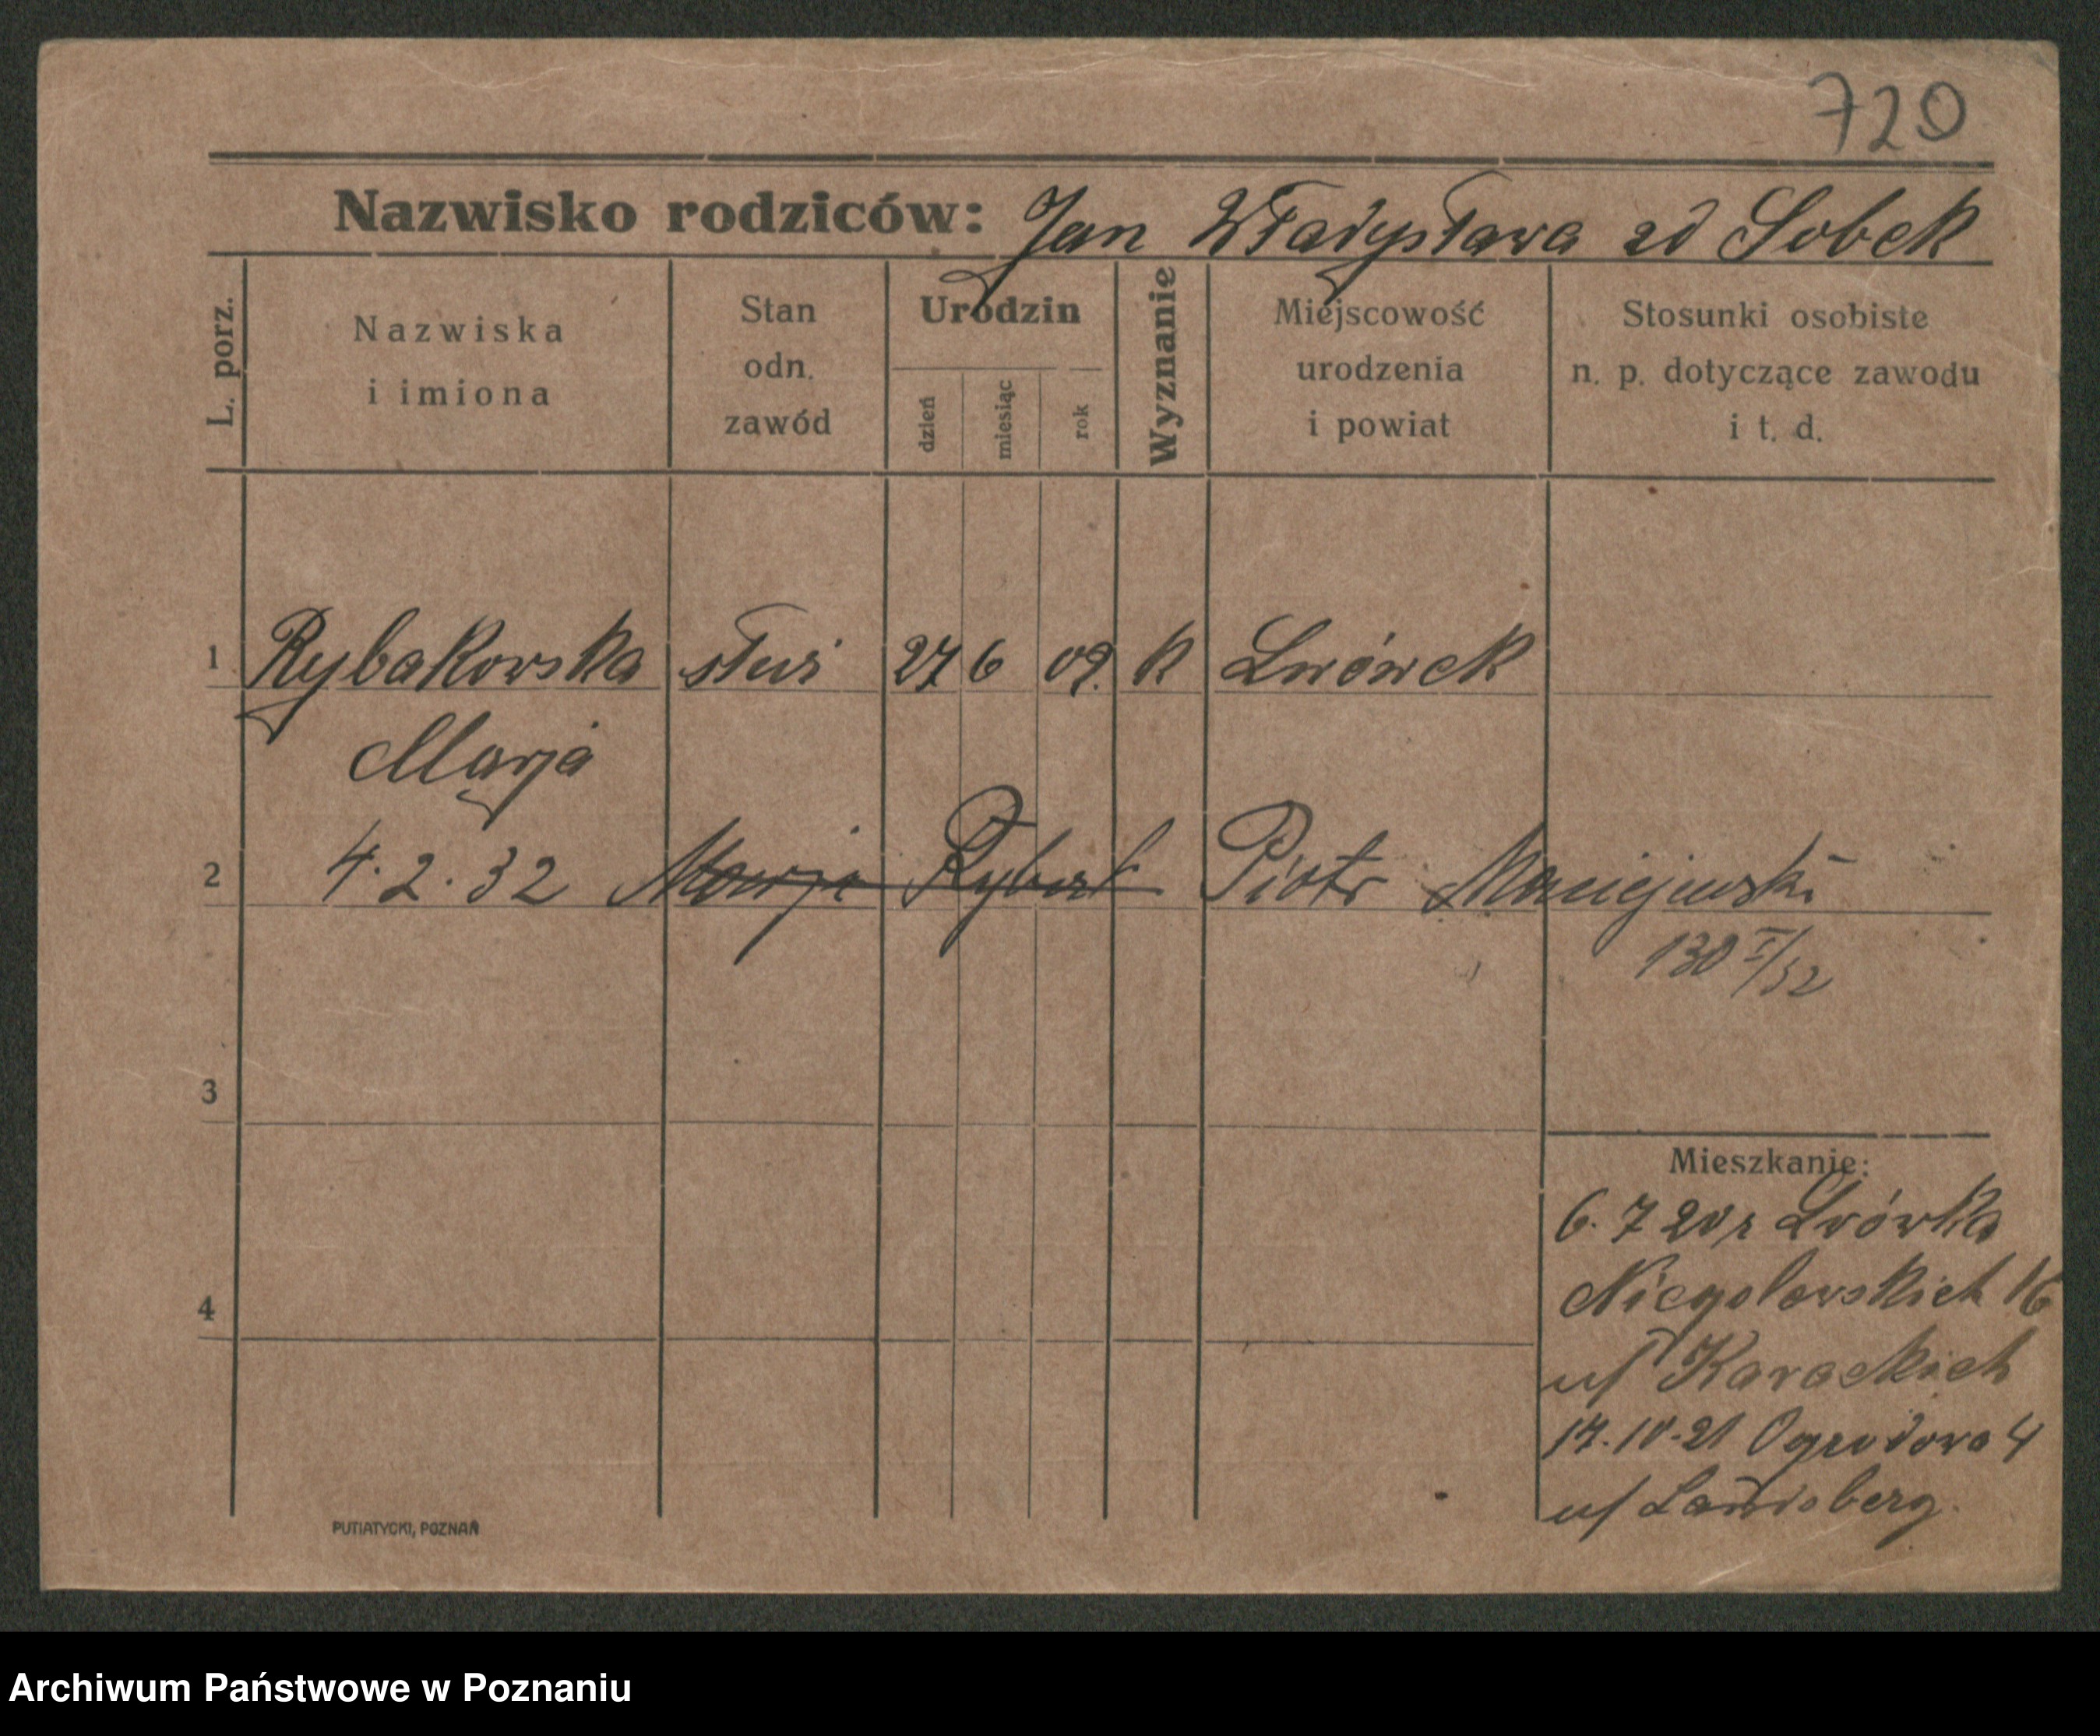 720
Nazwisko rodziców: Jan Władysława zd Sobek
L. porz.
Nazwiska
i imiona
Stan
odn.
zawód
Urodzin
dzień
miesiąc
rok
Wyznanie
Miejscowość
urodzenia
i powiat
Stosunki osobiste
n. p. dotyczące zawodu
i t. d.
1 Rybakowska służ 27 6 09. k Lwówek
Marja
2 4.2.32 Marja Rybak Piotr Maciejewski
130 I/32
3
4
Mieszkanie:
6.7 20 z Lwówka
Niegolewskich 16
u/
17.10.21 Ogrodowa 4
u/ Landsberg.
PUTIATYCKI, POZNAŃ
Archiwum Państwowe w Poznaniu